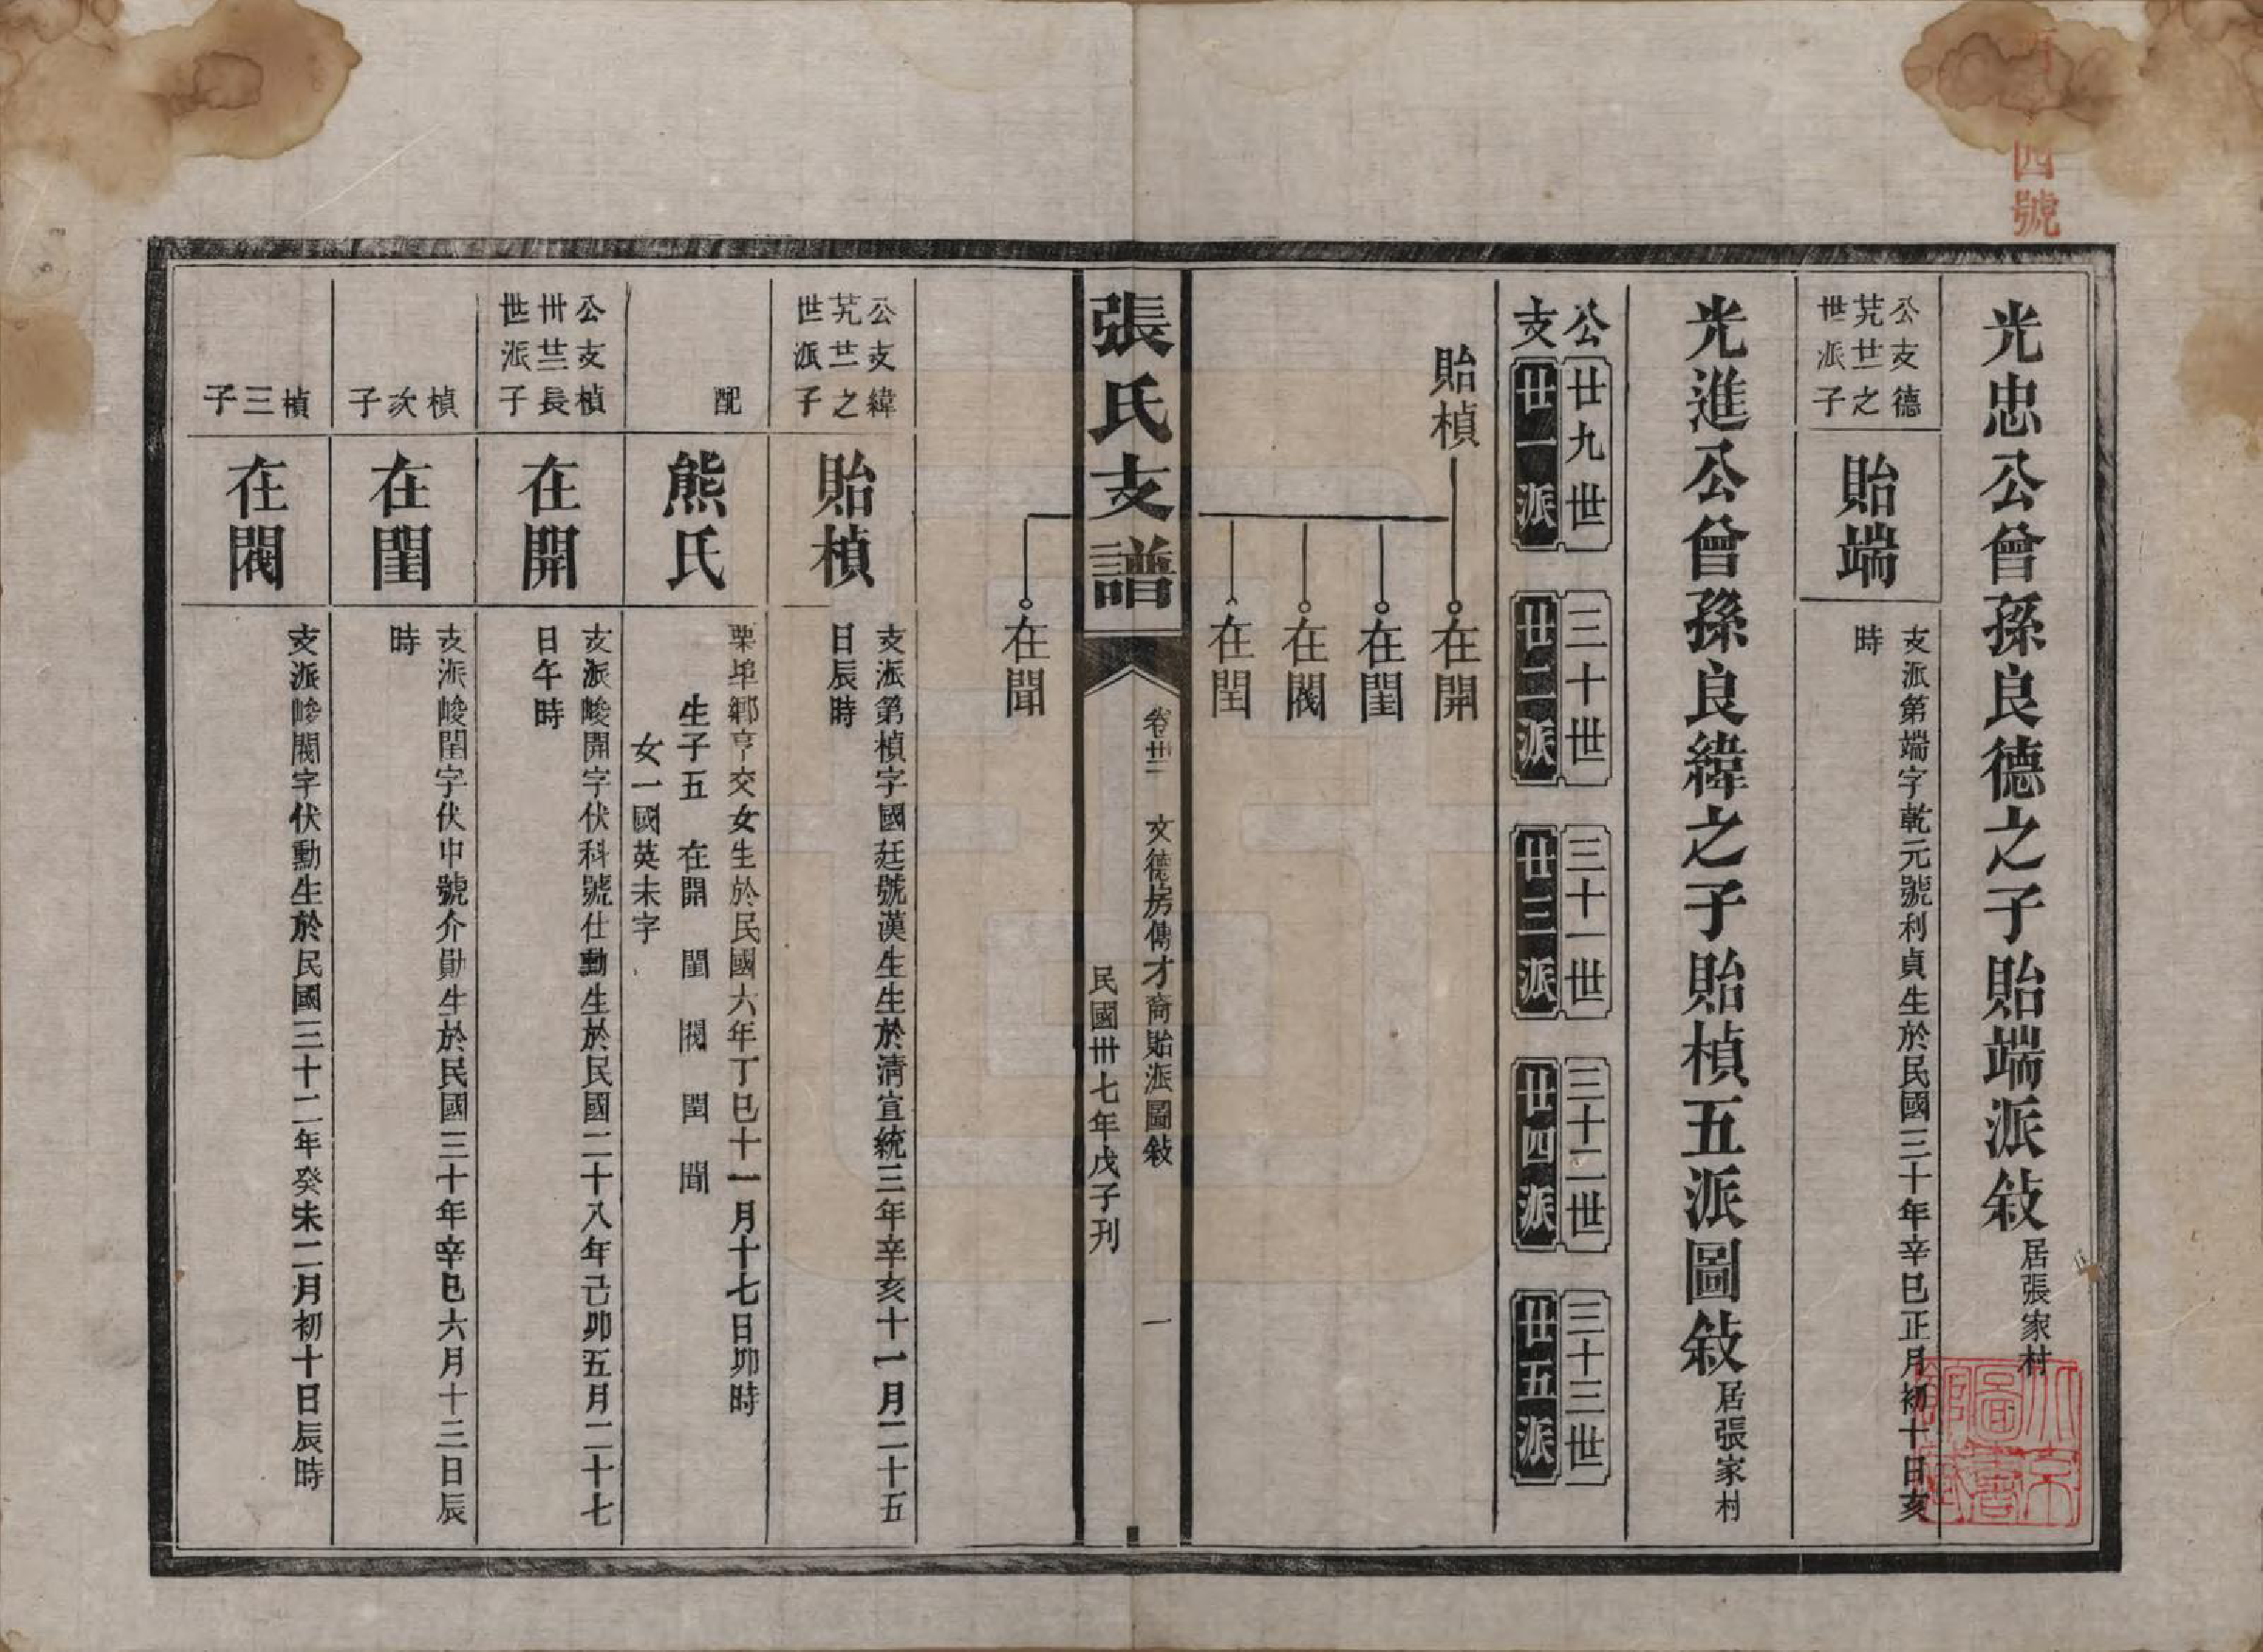 四號
光忠公曾孫良德之子貽端派敍居張家村
公支德
艽廿之
世派子
貽端
支派第端字乾元號利貞生於民國三十年辛巳正月初十日亥
時
光進公曾孫良緯之子貽楨五派圖敍居張家村
公 廿九世 三十世 三十一世 三十二世 三十三世
支 廿一派 廿二派 廿三派 廿四派 廿五派
貽楨
在開
在閨
在閥
在閏
張氏支譜
文德房傳才裔貽派圖敍 一
民國卅七年戊子刊
在聞
公支緯
艽廿之
世派子
貽楨
支派第楨字國廷號漢生生於清宣統三年辛亥十一月二十五
日辰時
配
熊氏
栗埠鄉亨交女生於民國六年丁巳十一月十七日卯時
生子五 在開 閨 閥 閏 聞
女一國英未字
公支楨
卅廿長
世派子
在開
支派峻開字伏科號仕勳生於民國二十八年己卯五月二十七
日午時
楨次子
在閨
支派峻閨字伏中號介勛生於民國三十年辛巳六月十三日辰
時
楨三子
在閥
支派峻閥字伏勳生於民國三十二年癸未二月初十日辰時